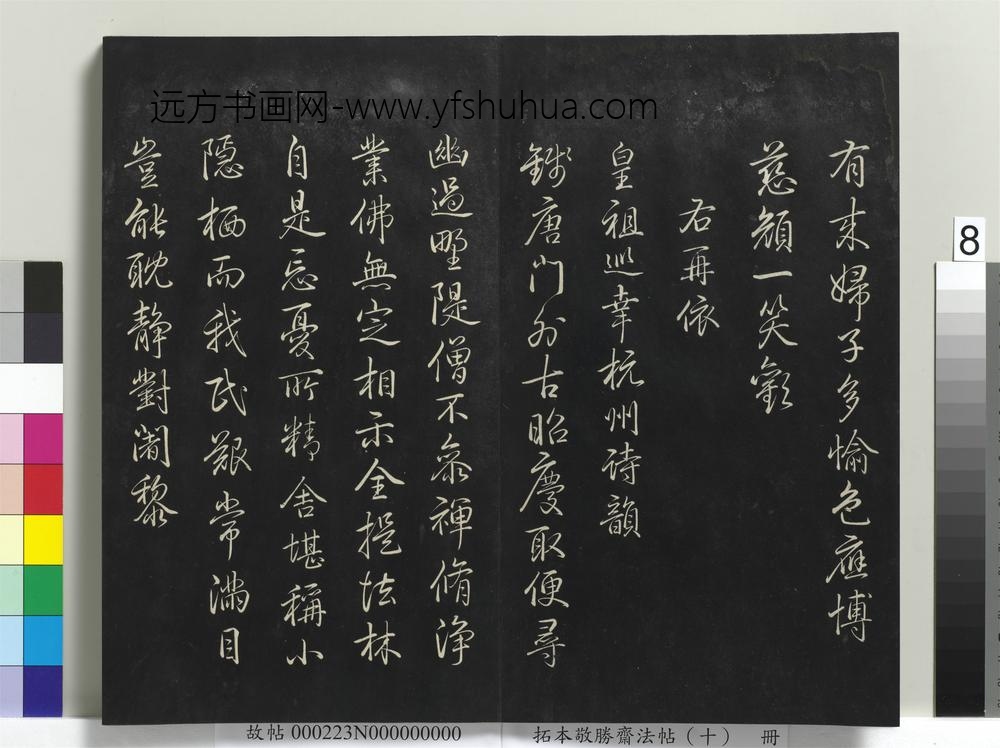 远方书画网-www.yfshuhua.com
有来婦子多愉色應博
慈顏一笑歡
右再依
皇祖巡幸杭州詩韻
錢唐門外古昭慶取便尋
幽過野隄僧不參禪脩淨
業佛無定相示全提怯林
自是忘憂所精舍堪稱小
隱栖而我民艱常滿目
豈能耽靜對闍黎
8
故帖 000223N000000000
拓本敬勝齋法帖（十） 冊